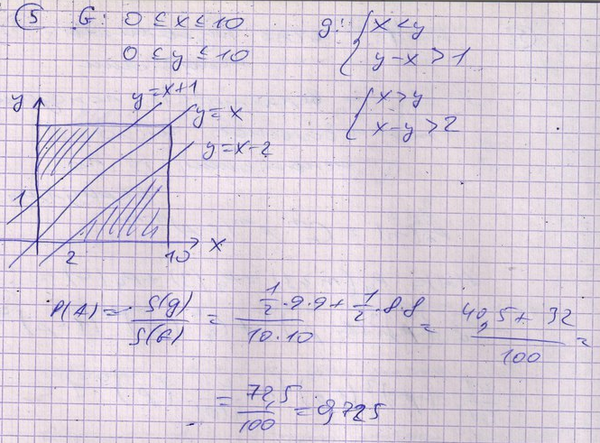 ⑤ G: 0 ≤ x ≤ 10 g: { x < y
0 ≤ y ≤ 10 y - x > 1
{ x > y
x - y > 2
y = x+1
y
y = x
y = x - 2
1
2 10 x
P(A) = S(g) / S(G) = (1/2 · 9 · 9 + 1/2 · 8 · 8) / (10 · 10) = (40,5 + 32) / 100 =
= 72,5 / 100 = 0,725